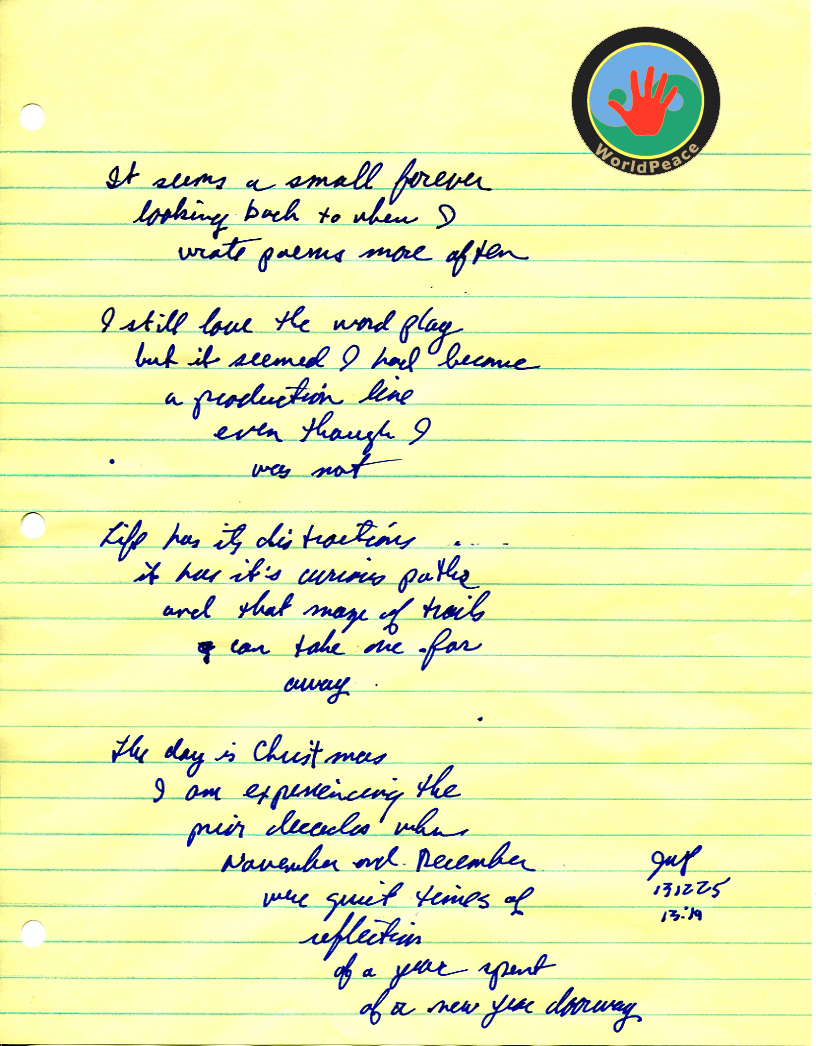 WorldPeace
It seems a small forever
looking back to when I
wrote poems more often
I still love the word play
but it seemed I had become
a production line
even though I
was not
Life has its distractions ....
it has it's curious paths
and that maze of trails
can take one far
away
The day is Christmas
I am experiencing the
prior decades when
November and December
were quiet times of
reflection
of a year spent
of a new year doorway
131225
13:19